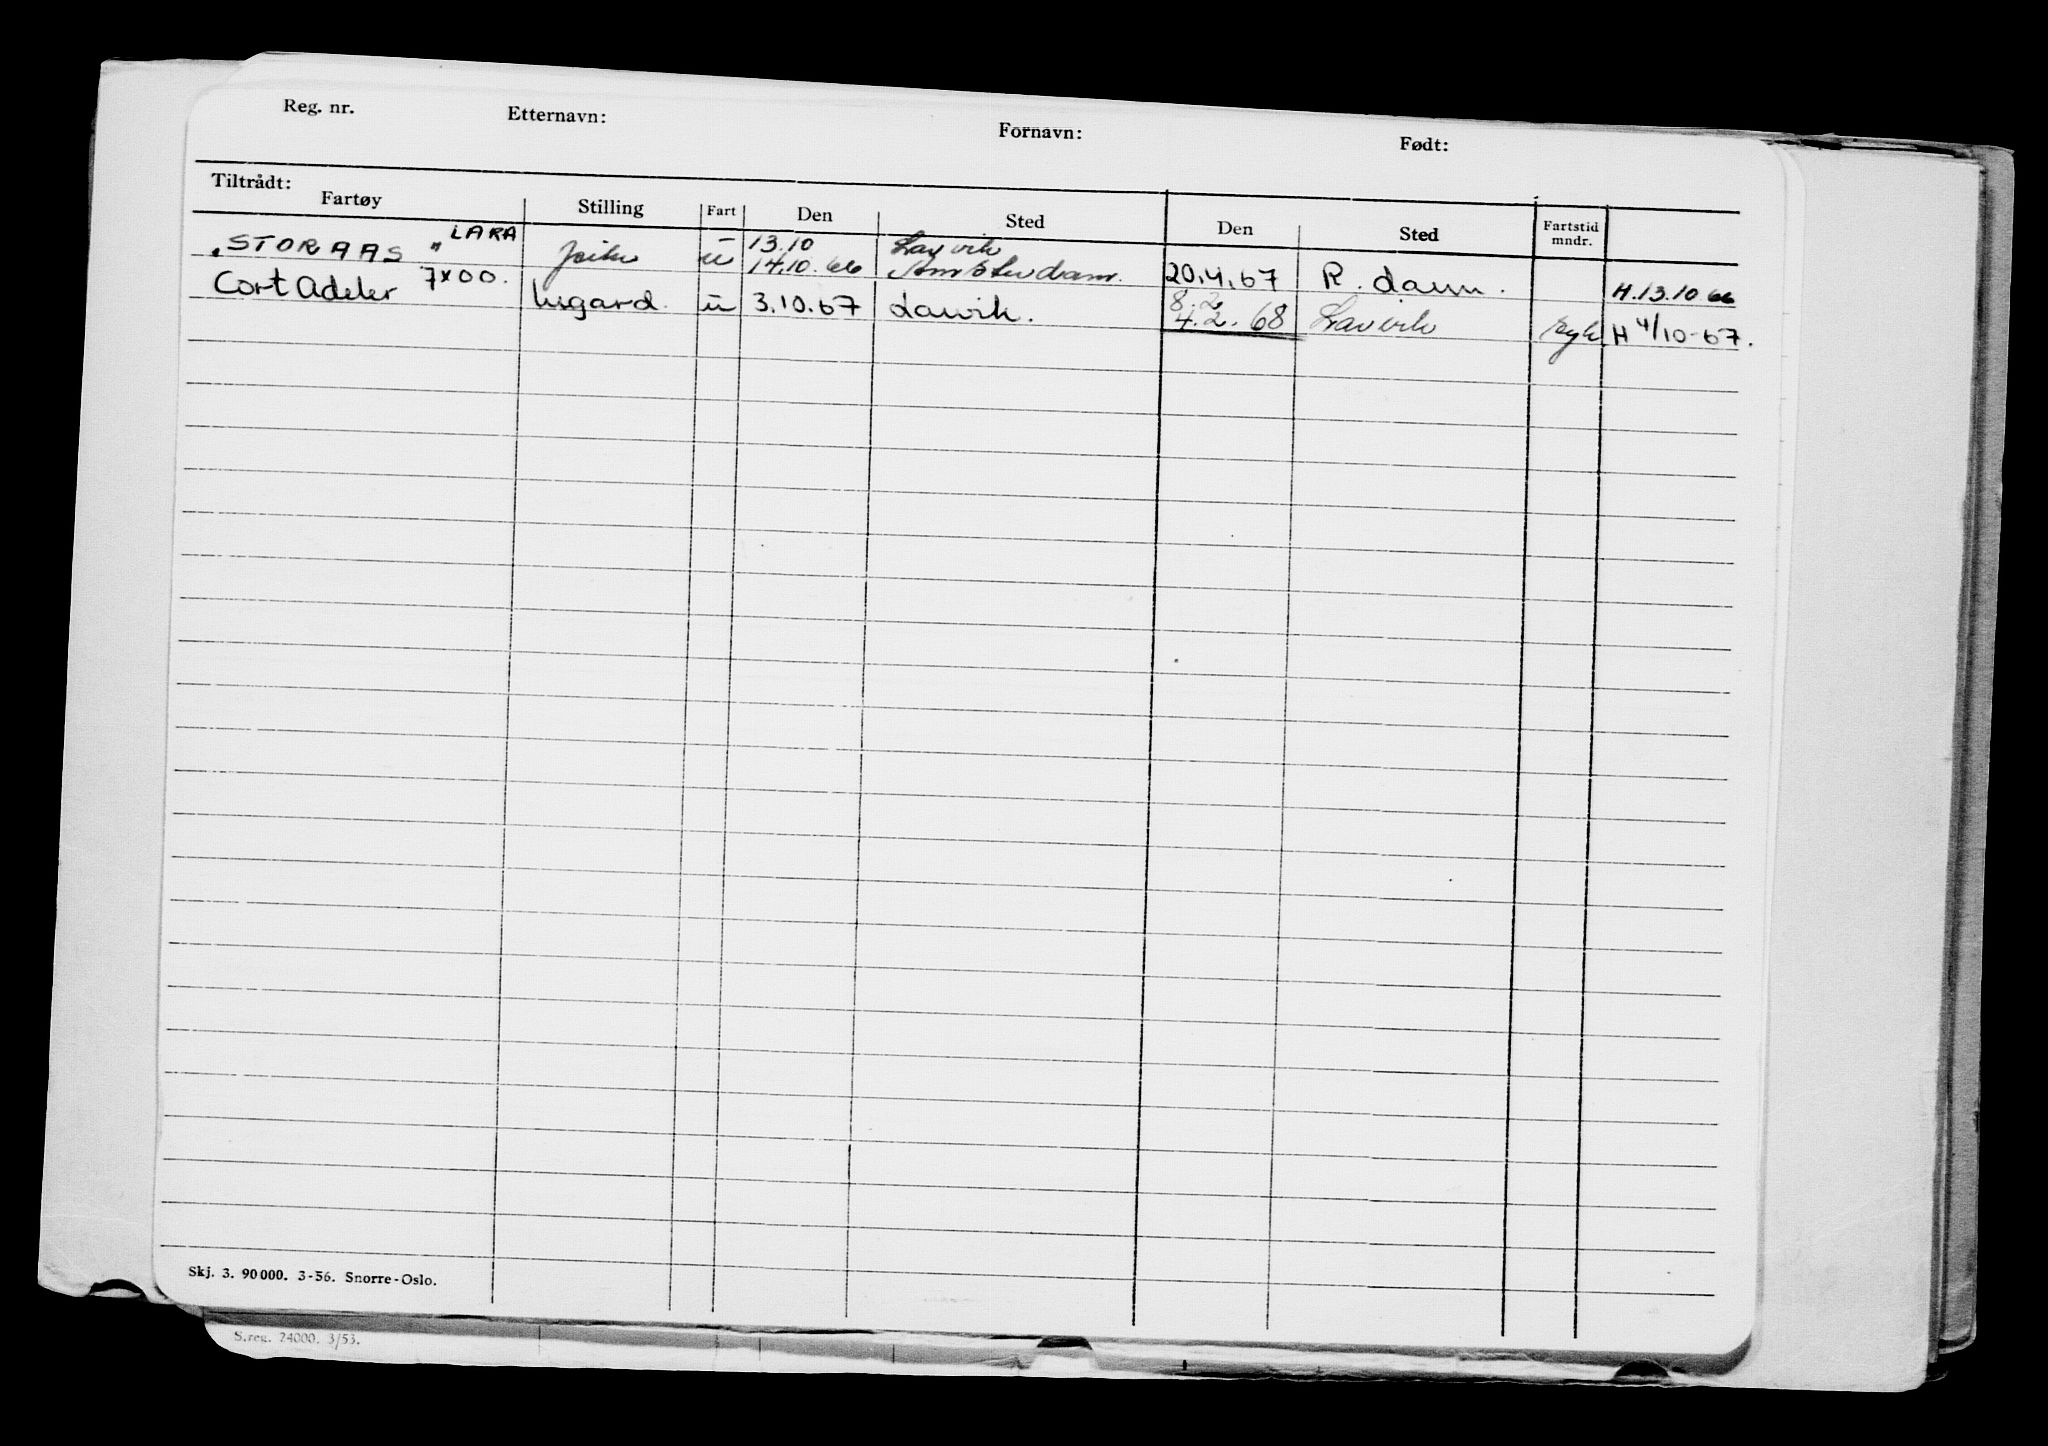 Reg. nr. Etternavn: Fornavn: Født:
Tiltrådt:
Fartøy Stilling Fart Den Sted Den Sted Fartstid mndr.
"STORAAS" LARA u 13.10 Larvik
7x00. 14.10.66 Amsterdam. 20.4.67 R.dam. H.13.10 66
Cort Adeler u 3.10.67 Larvik. 8.2
4.2.68 Larvik syk H 4/10-67.
Skj. 3. 90000. 3-56. Snorre-Oslo.
S.reg. 24000. 3/53.